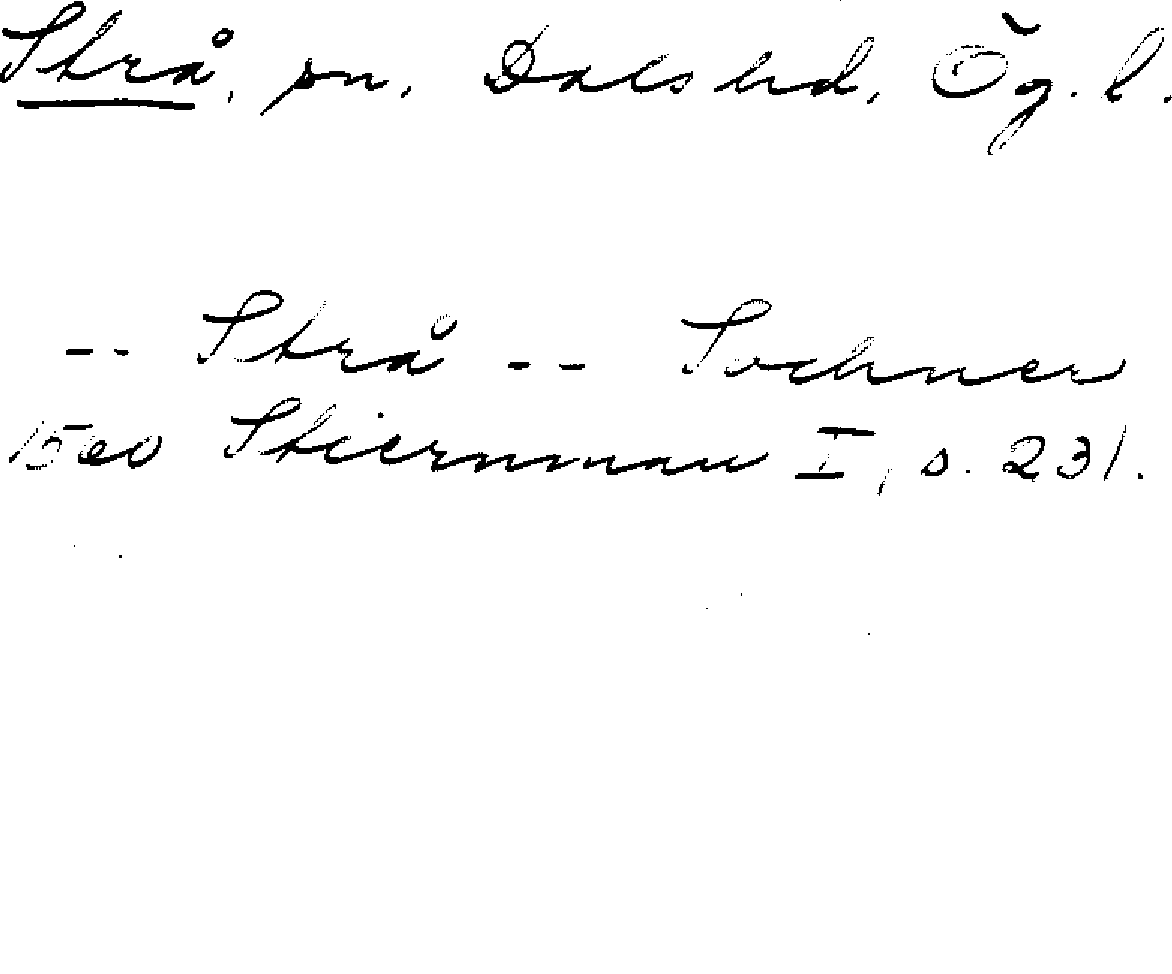 Strå, sn. Dals hd, Ög. l.
-- Strå -- Sochner
1560 Stiernman I, s. 231.